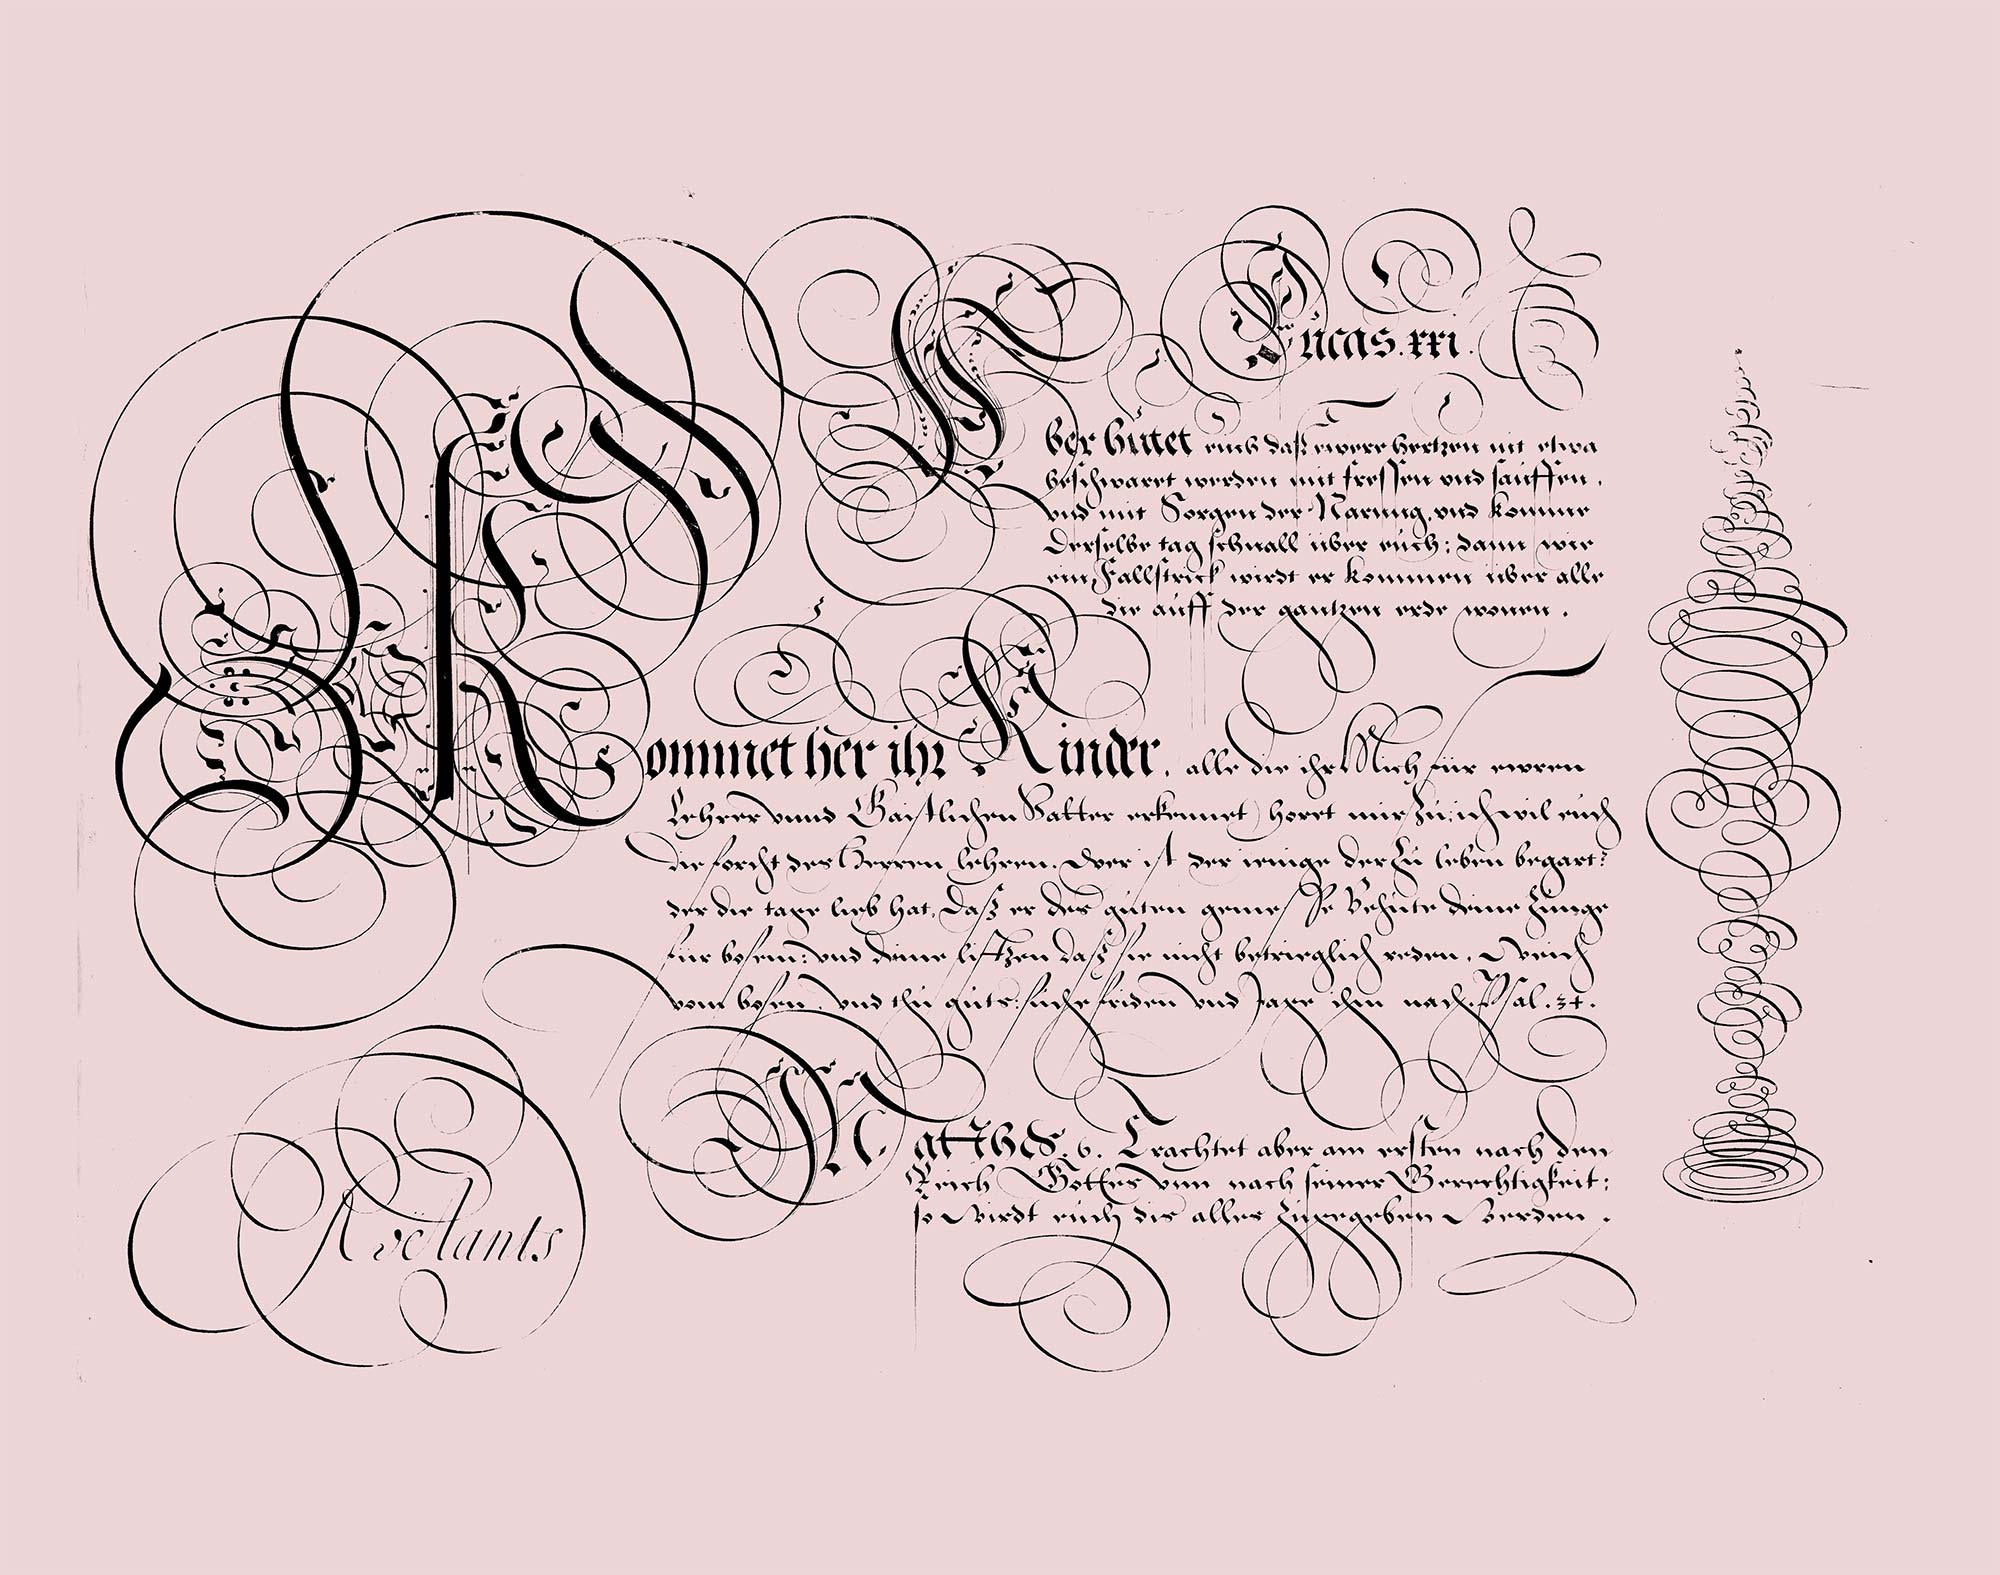 Lucas. xxi.
Aber hütet euch daß ewere hertzen nit etwa
beschwaret werden mit fressen vnd sauffen.
vnd mit Sorgen der Narung, vnd komme
derselbe tag schnall über euch: dann wie
ein Fallstrick wirdt er kommen über alle
die auff der gantzen erde wonen.
Kommet her ihr Kinder, alle die ihr Mich für ewren
Lehrer vnnd Gaistlichen Vatter erkennet) horet mir zu: ich wil euch
die forcht des Herren lehren. Wer ist der ienige der zu leben begart?
der die tage lieb hat, daß er des guten genies Se Behüte deine Zunge
für bosem: vnd deine liftzen daß sie nicht betrieglich reden. Weich
vom bosen. vnd thu guts: suche friden vnd Jage ihm nach. Psal. 34.
Mattheÿ. 6. Trachtet aber am ersten nach den
Reich Gottes vnn nach seiner Gerechtigkeit:
so Wirdt euch dis alles zugegeben Werden.